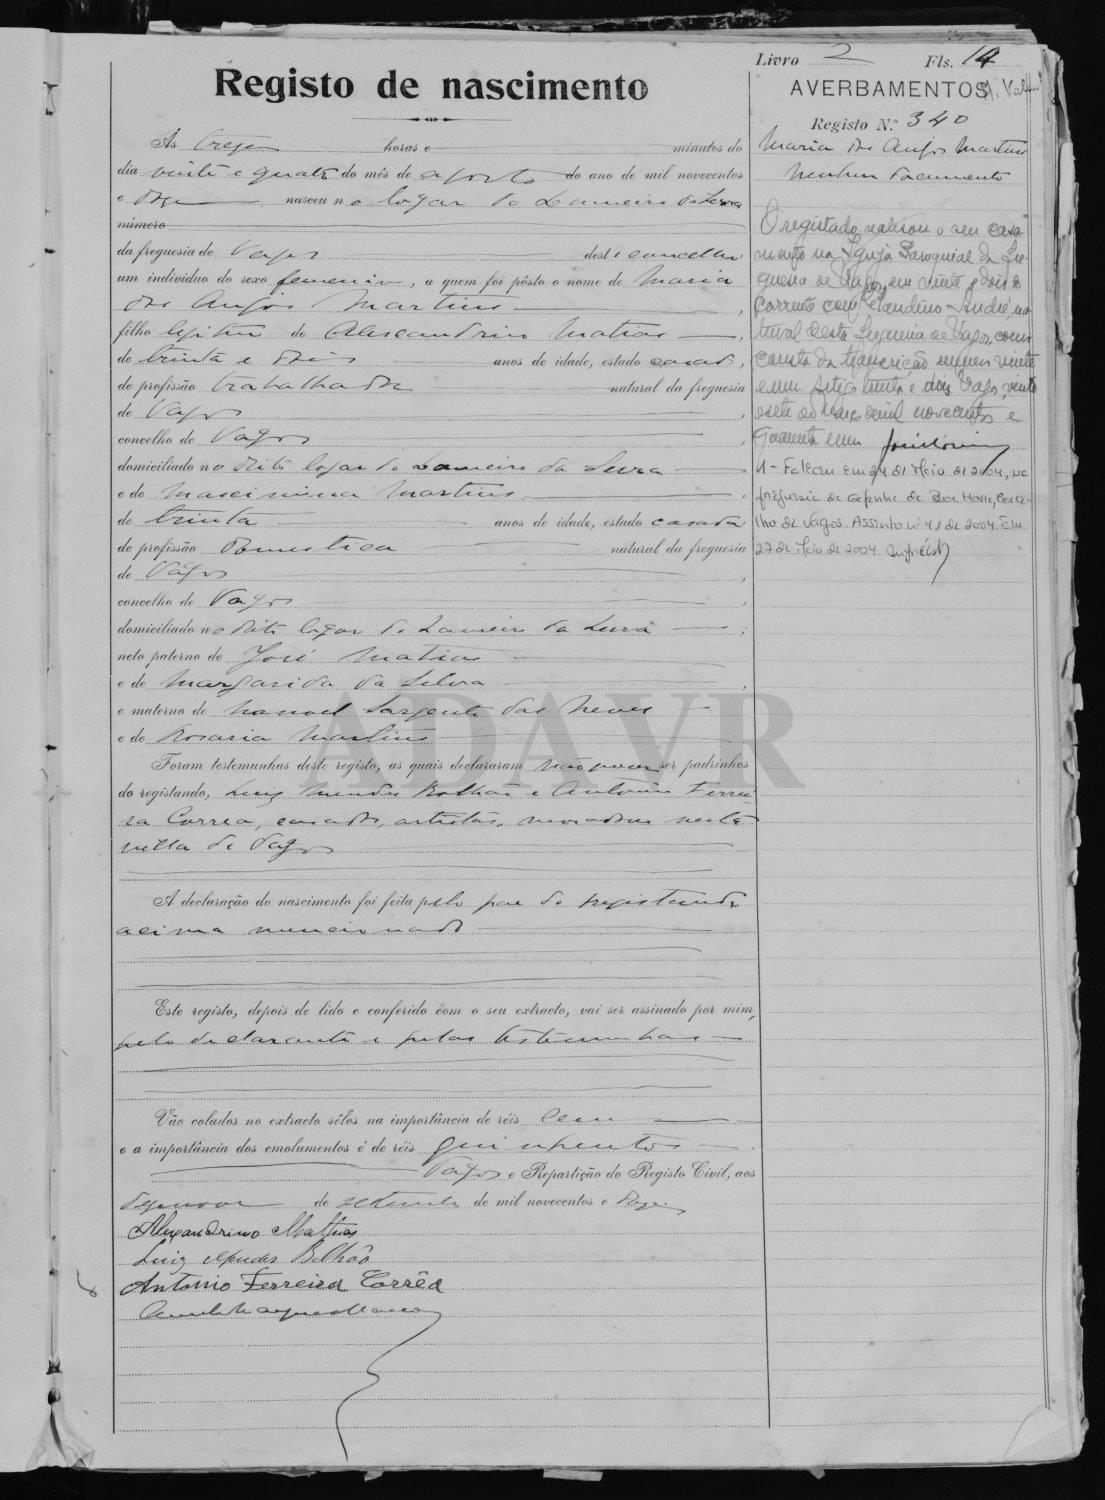 Livro 2 Fls. 14
Registo de nascimento
AVERBAMENTOS
Registo N.º 340
Às treze horas e minutos do
dia vinte e quatro do mês de agosto do ano de mil novecentos
e doze nasceu no logar do Lameiro da Serra
número
da freguesia de Vagos deste concelho
um indivíduo do sexo femenino, a quem foi pôsto o nome de Maria
dos Anjos Martins
filho legitimo de Alexandrino Matias,
de trinta e dois anos de idade, estado casado,
de profissão trabalhador natural da freguesia
de Vagos,
concelho de Vagos,
domiciliado no dito logar do Lameiro da Serra
e de Maximina Martins,
de trinta anos de idade, estado casada
de profissão domestica natural da freguesia
de Vagos,
concelho de Vagos,
domiciliado no dito logar do Lameiro da Serra;
neto paterno de José Matias
e de Margarida da Silva,
e materno de Manoel Sargento das Neves
e de Rosaria Martins
Foram testemunhas deste registo, as quais declararam não ser padrinhos
do registando, Luiz Mendes Bolhão e Antonio Ferrei-
ra Correa, casados, artistas, moradores nesta
villa de Vagos
A declaração do nascimento foi feita pelo pae do registando
acima mencionado
Este registo, depois de lido e conferido com o seu extracto, vai ser assinado por mim,
pelo declarante e pelas testemunhas
Vão colados no extracto sêlos na importância de réis cem
e a importância dos emolumentos é de réis quinhentos
Vagos e Repartição do Registo Civil, aos
dezenove de setembro de mil novecentos e doze
Alexandrino Mathias
Luiz Mendes Bolhão
Antonio Ferreira Corrêa
Maria dos Anjos Martins
Nenhum documento
O registado realisou o seu casa-
mento na Igreja Paroquial da fre-
guesia de Vagos, em vinte e dois do
corrente com Claudino André, na-
tural desta freguesia de Vagos, como
consta da transcrição numero vinte
e um. Artigo trinta e dois. Vagos, vinte
e sete de Março de mil novecentos e
quarenta e um
1 - Faleceu em 24 de Maio de 2004, na
freguesia da Gafanha da Boa Hora, conce-
lho de Vagos. Assento nº 41 de 2004. Em
27 de Maio de 2004
ADAVR